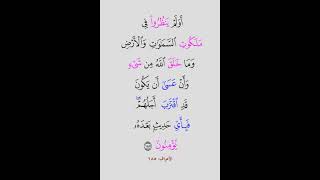 أَوَلَمْ يَنظُرُوا۟ فِى
مَلَكُوتِ ٱلسَّمَـٰوَٰتِ وَٱلْأَرْضِ
وَمَا خَلَقَ ٱللَّهُ مِن شَىْءٍ
وَأَنْ عَسَىٰٓ أَن يَكُونَ
قَدِ ٱقْتَرَبَ أَجَلُهُمْ ۖ
فَبِأَىِّ حَدِيثٍۭ بَعْدَهُۥ
يُؤْمِنُونَ ١٨٥
الأعراف: ١٨٥